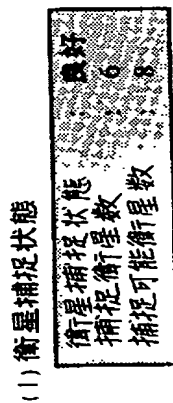 (1) 衛星捕捉状態
衛星捕捉状態 : 良好
捕捉衛星数 : 6
捕捉可能衛星数 : 8